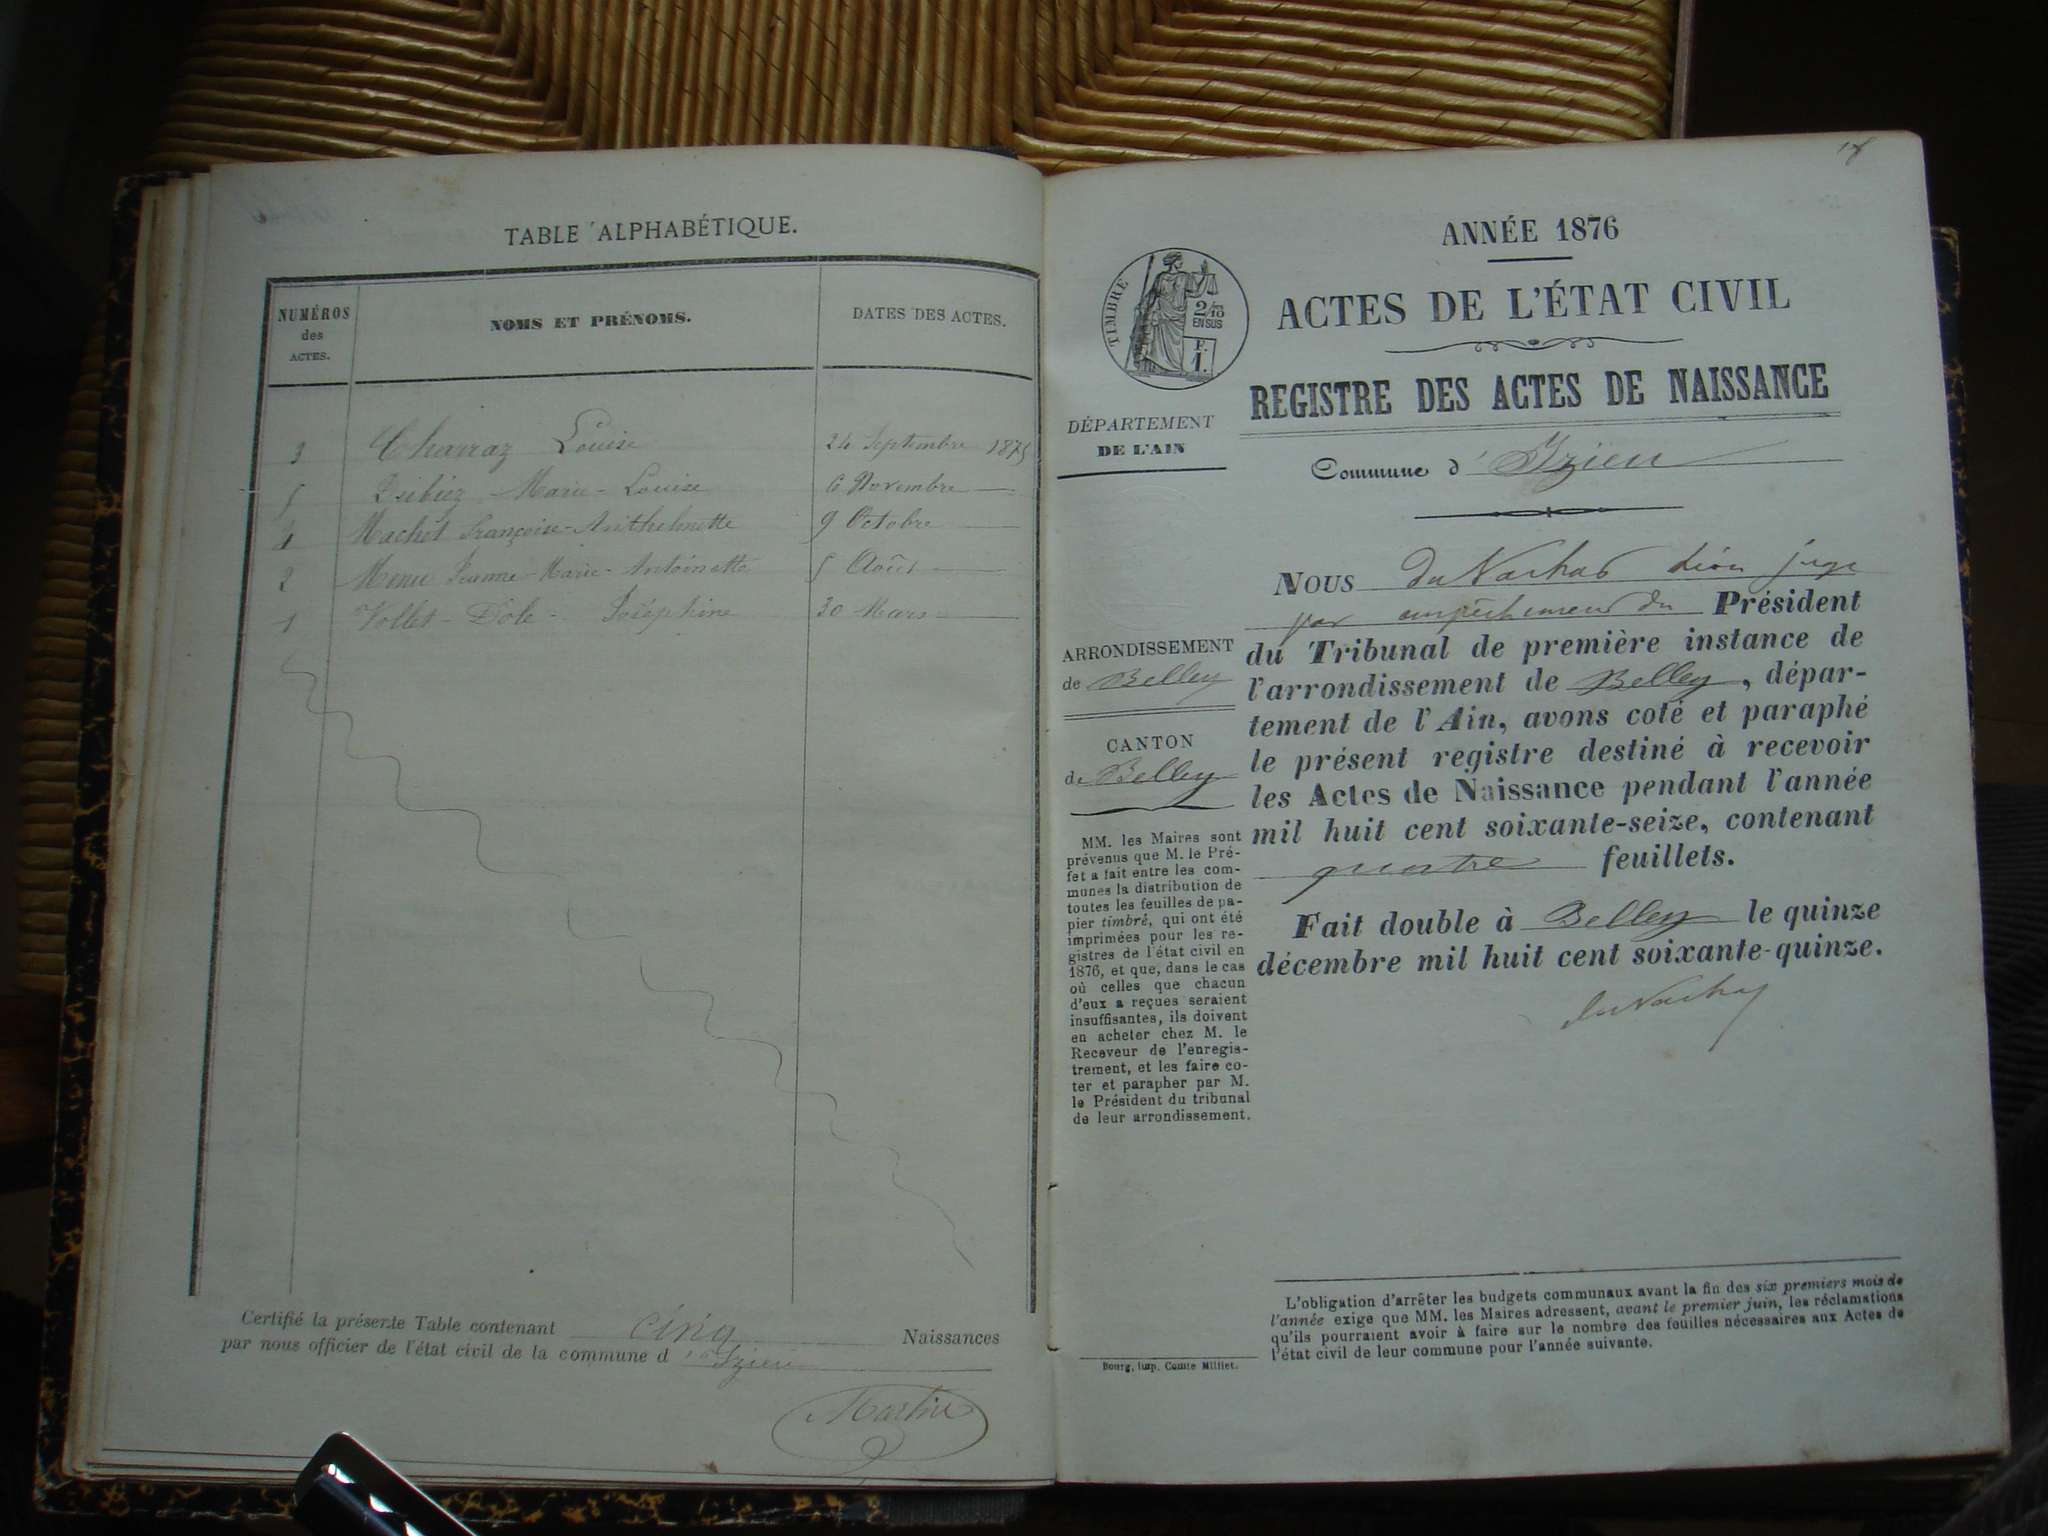 TABLE ALPHABÉTIQUE.
NUMÉROS
des
ACTES.
NOMS ET PRÉNOMS.
DATES DES ACTES.
3 Charraz Louise 24 Septembre 1875
5 Marie-Louise 6 Novembre
4 Machet Françoise-Anthelmette 9 Octobre
2 Menu Jeanne-Marie-Antoinette 5 Août
1 Vollet-Dole- Joséphine 30 Mars
Certifié la présente Table contenant cinq Naissances
par nous officier de l'état civil de la commune d'Izieu
Martin
18
ANNÉE 1876
TIMBRE
2/10
EN SUS
F.
1.
ACTES DE L'ÉTAT CIVIL
REGISTRE DES ACTES DE NAISSANCE
DÉPARTEMENT
DE L'AIN
Commune d'Izieu
ARRONDISSEMENT
de Belley
CANTON
de Belley
MM. les Maires sont
prévenus que M. le Pré-
fet a fait entre les com-
munes la distribution de
toutes les feuilles de pa-
pier timbré, qui ont été
imprimées pour les re-
gistres de l'état civil en
1876, et que, dans le cas
où celles que chacun
d'eux a reçues seraient
insuffisantes, ils doivent
en acheter chez M. le
Receveur de l'enregis-
trement, et les faire co-
ter et parapher par M.
le Président du tribunal
de leur arrondissement.
NOUS juge
par empêchement du Président
du Tribunal de première instance de
l'arrondissement de Belley, dépar-
tement de l'Ain, avons coté et paraphé
le présent registre destiné à recevoir
les Actes de Naissance pendant l'année
mil huit cent soixante-seize, contenant
quatre feuillets.
Fait double à Belley le quinze
décembre mil huit cent soixante-quinze.
L'obligation d'arrêter les budgets communaux avant la fin des six premiers mois de
l'année exige que MM. les Maires adressent, avant le premier juin, les réclamations
qu'ils pourraient avoir à faire sur le nombre des feuilles nécessaires aux Actes de
l'état civil de leur commune pour l'année suivante.
Bourg, imp. Comte Milliet.